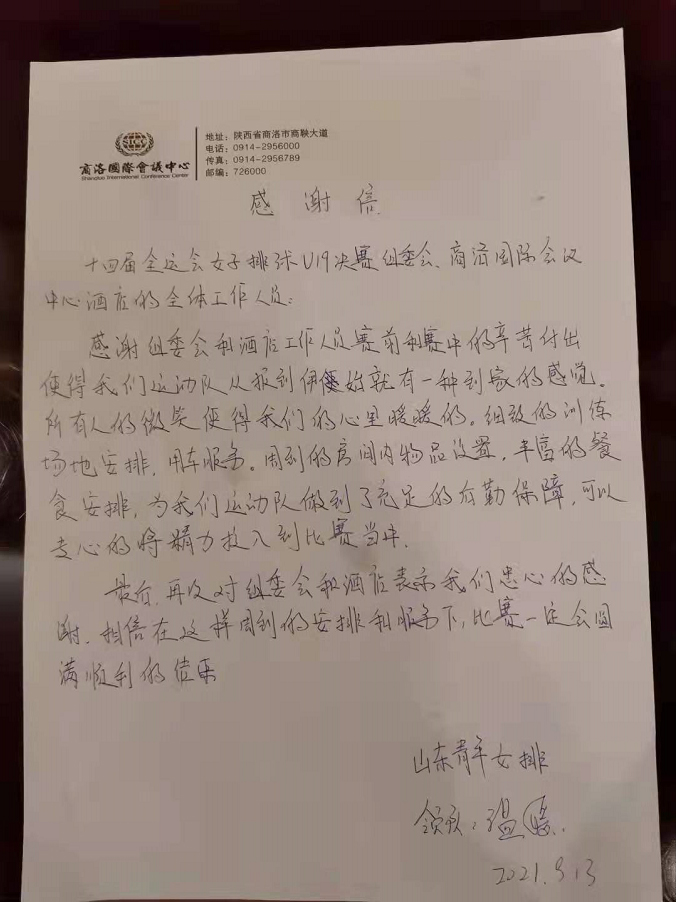 SICC
商洛國際會議中心
Shangluo International Conference Center
地址：陕西省商洛市商鞅大道
电话：0914-2956000
传真：0914-2956789
邮编：726000
感谢信
十四届全运会女子排球U19决赛组委会、商洛国际会议
中心酒店的全体工作人员：
感谢组委会和酒店工作人员赛前和赛中的辛苦付出
使得我们运动队从报到伊始就有一种到家的感觉。
所有人的微笑使得我们的心里暖暖的。细致的训练
场地安排，用车服务。周到的房间内物品设置，丰富的餐
食安排，为我们运动队做到了充足的后勤保障，可以
专心的将精力投入到比赛当中.
最后，再次对组委会和酒店表示我们忠心的感
谢.相信在这样周到的安排和服务下，比赛一定会圆
满顺利的结束
山东青年女排
领队：温
2021.9.13